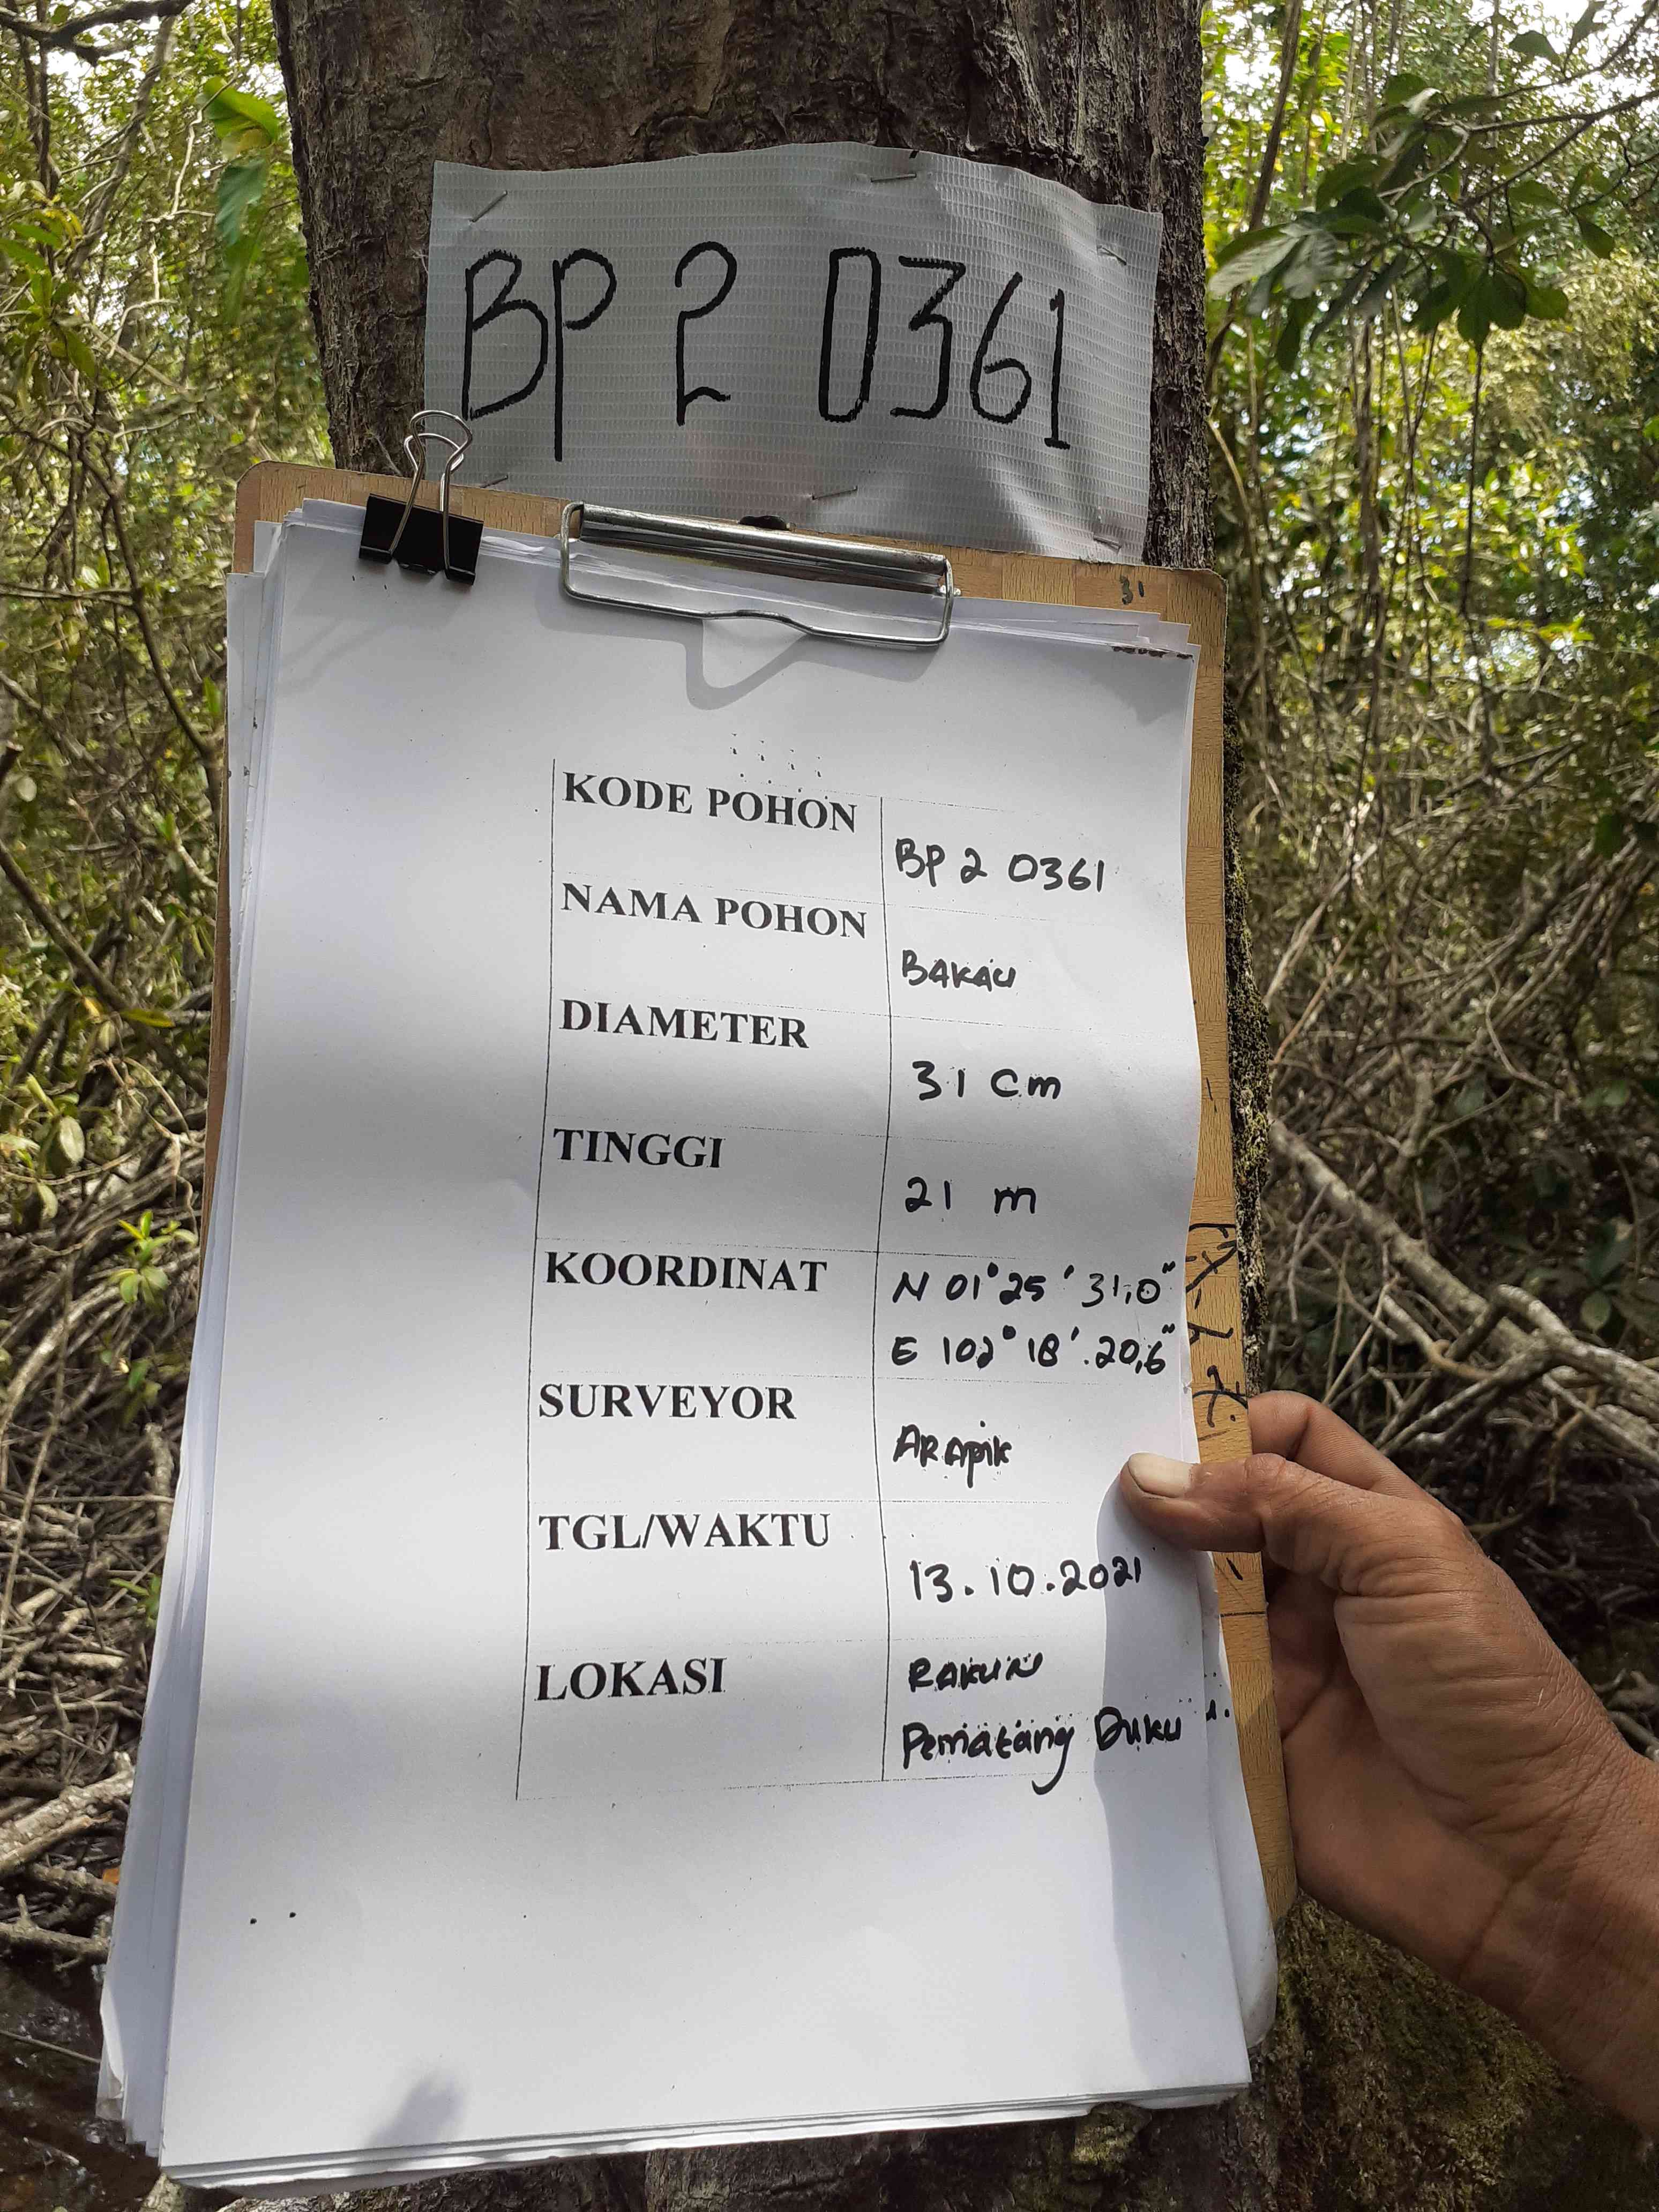 BP 2 0361
31
KODE POHON
BP 2 0361
NAMA POHON
BAKAU
DIAMETER
31 cm
TINGGI
21 m
KOORDINAT
N 01° 25' 31,0"
E 102° 18'. 20,6"
SURVEYOR
ARApik
TGL/WAKTU
13.10.2021
LOKASI
RAKUN
Pematang Duku